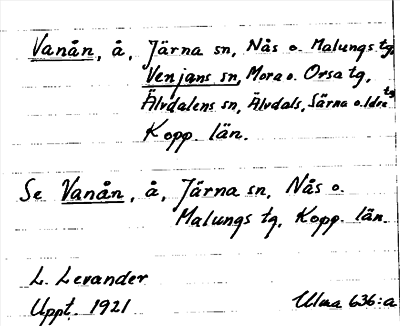 Vanån, å, Järna sn, Nås o. Malungs tg,
Venjans sn, Mora o. Orsa tg,
Älvdalens sn, Älvdals, Särna o. Idre tg
Kopp. län.
Se Vanån, å, Järna sn, Nås o.
Malungs tg, Kopp. län.
L. Levander
Uppt. 1921
Ulma 636:a